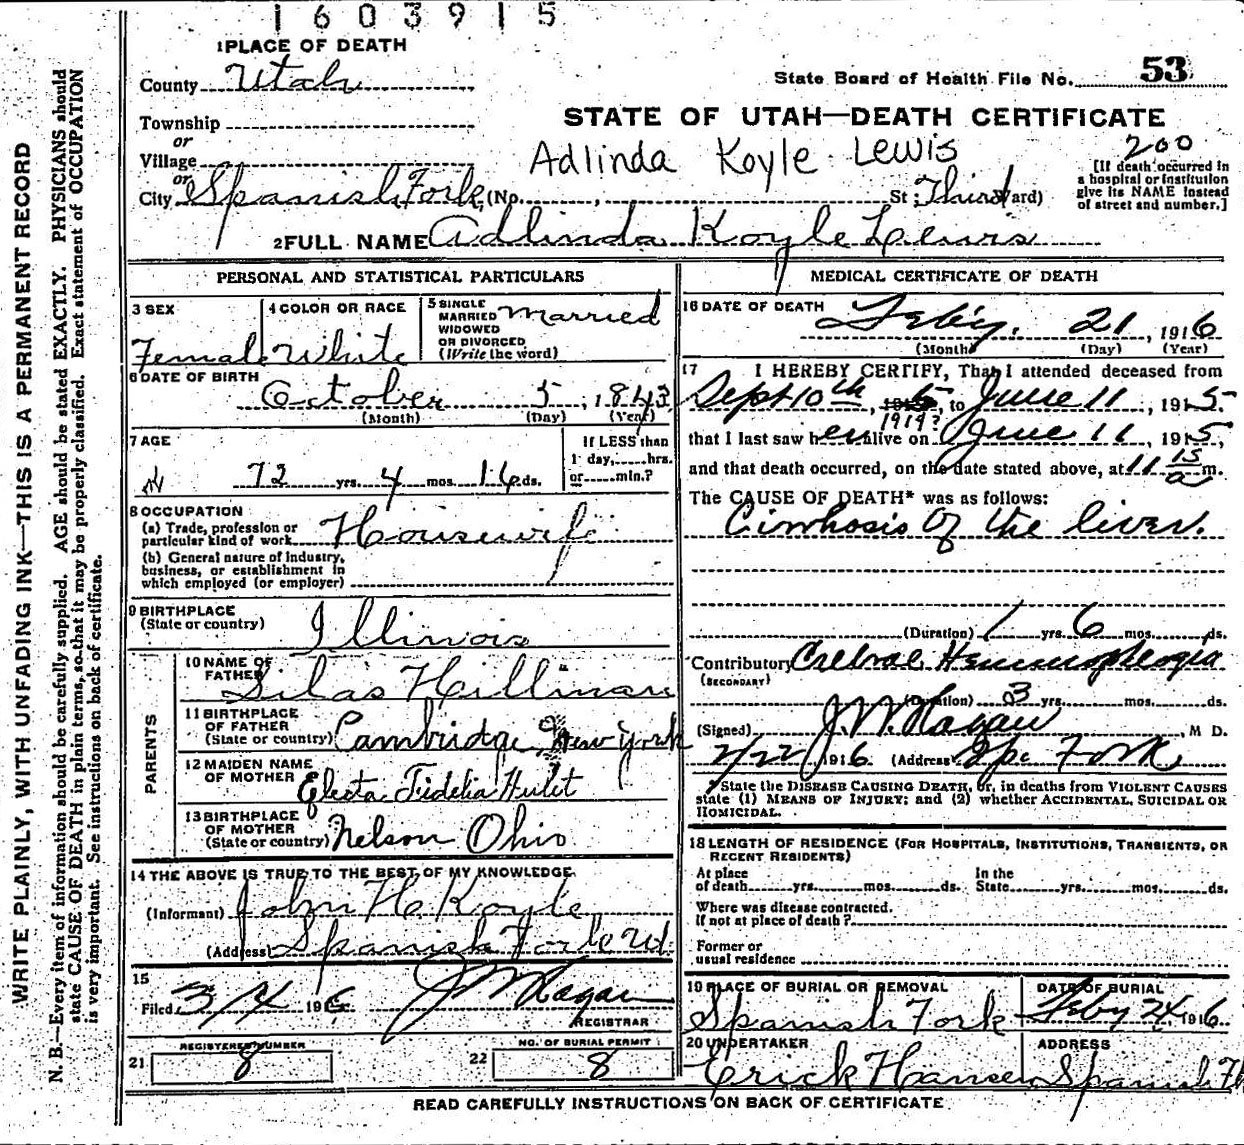 1603915
1 PLACE OF DEATH
County Utah
State Board of Health File No. 53
Township
STATE OF UTAH—DEATH CERTIFICATE
or
Village
Adlinda Koyle Lewis
200
or
City Spanish Fork (No. , St ; Third Ward)
[If death occurred in
a hospital or institution
give its NAME instead
of street and number.]
2 FULL NAME Adlinda Koyle Lewis
PERSONAL AND STATISTICAL PARTICULARS
3 SEX
Female
4 COLOR OR RACE
White
5 SINGLE
MARRIED
WIDOWED
OR DIVORCED
(Write the word)
Married
6 DATE OF BIRTH
October 5, 1843
(Month) (Day) (Year)
7 AGE
72 yrs. 4 mos. 16 ds.
If LESS than
1 day, hrs.
or min.?
8 OCCUPATION
(a) Trade, profession or
particular kind of work Housewife
(b) General nature of industry,
business, or establishment in
which employed (or employer)
9 BIRTHPLACE
(State or country) Illinois
PARENTS
10 NAME OF
FATHER Silas Hillman
11 BIRTHPLACE
OF FATHER
(State or country) Cambridge New York
12 MAIDEN NAME
OF MOTHER Electa Fidelia Hulet
13 BIRTHPLACE
OF MOTHER
(State or country) Nelson Ohio
14 THE ABOVE IS TRUE TO THE BEST OF MY KNOWLEDGE
(Informant) John H Koyle
(Address) Spanish Fork Ut
15
Filed 3/4 1916 J W Hagan
REGISTRAR
21 REGISTERED NUMBER
8
22 NO. OF BURIAL PERMIT
8
MEDICAL CERTIFICATE OF DEATH
16 DATE OF DEATH
Feby. 21, 1916
(Month) (Day) (Year)
17 I HEREBY CERTIFY, That I attended deceased from
Sept 10th, 1915, to June 11, 1915.
1914?
that I last saw her alive on June 11, 1915,
and that death occurred, on the date stated above, at 11 15 a m.
The CAUSE OF DEATH* was as follows:
Cirrhosis of the liver.
(Duration) 1 yrs. 6 mos. ds.
Contributory
(SECONDARY)
(Duration) 3 yrs. mos. ds.
(Signed) J. W. Hagan, M D.
2/22 1916 (Address) Sp. Fork
*State the DISEASE CAUSING DEATH, or, in deaths from VIOLENT CAUSES
state (1) MEANS OF INJURY; and (2) whether ACCIDENTAL, SUICIDAL OR
HOMICIDAL.
18 LENGTH OF RESIDENCE (FOR HOSPITALS, INSTITUTIONS, TRANSIENTS, OR
RECENT RESIDENTS)
At place
of death yrs. mos. ds.
In the
State yrs. mos. ds.
Where was disease contracted.
if not at place of death?
Former or
usual residence
19 PLACE OF BURIAL OR REMOVAL
Spanish Fork
DATE OF BURIAL
Feby 24 1916
20 UNDERTAKER
Erick Hansen
ADDRESS
Spanish Fk
READ CAREFULLY INSTRUCTIONS ON BACK OF CERTIFICATE
WRITE PLAINLY, WITH UNFADING INK—THIS IS A PERMANENT RECORD
N. B.—Every item of information should be carefully supplied. AGE should be stated EXACTLY. PHYSICIANS should
state CAUSE OF DEATH in plain terms, so that it may be properly classified. Exact statement of OCCUPATION
is very important. See instructions on back of certificate.